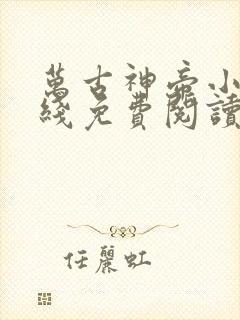 萬古神帝小
綫免費閱讀
任麗虹